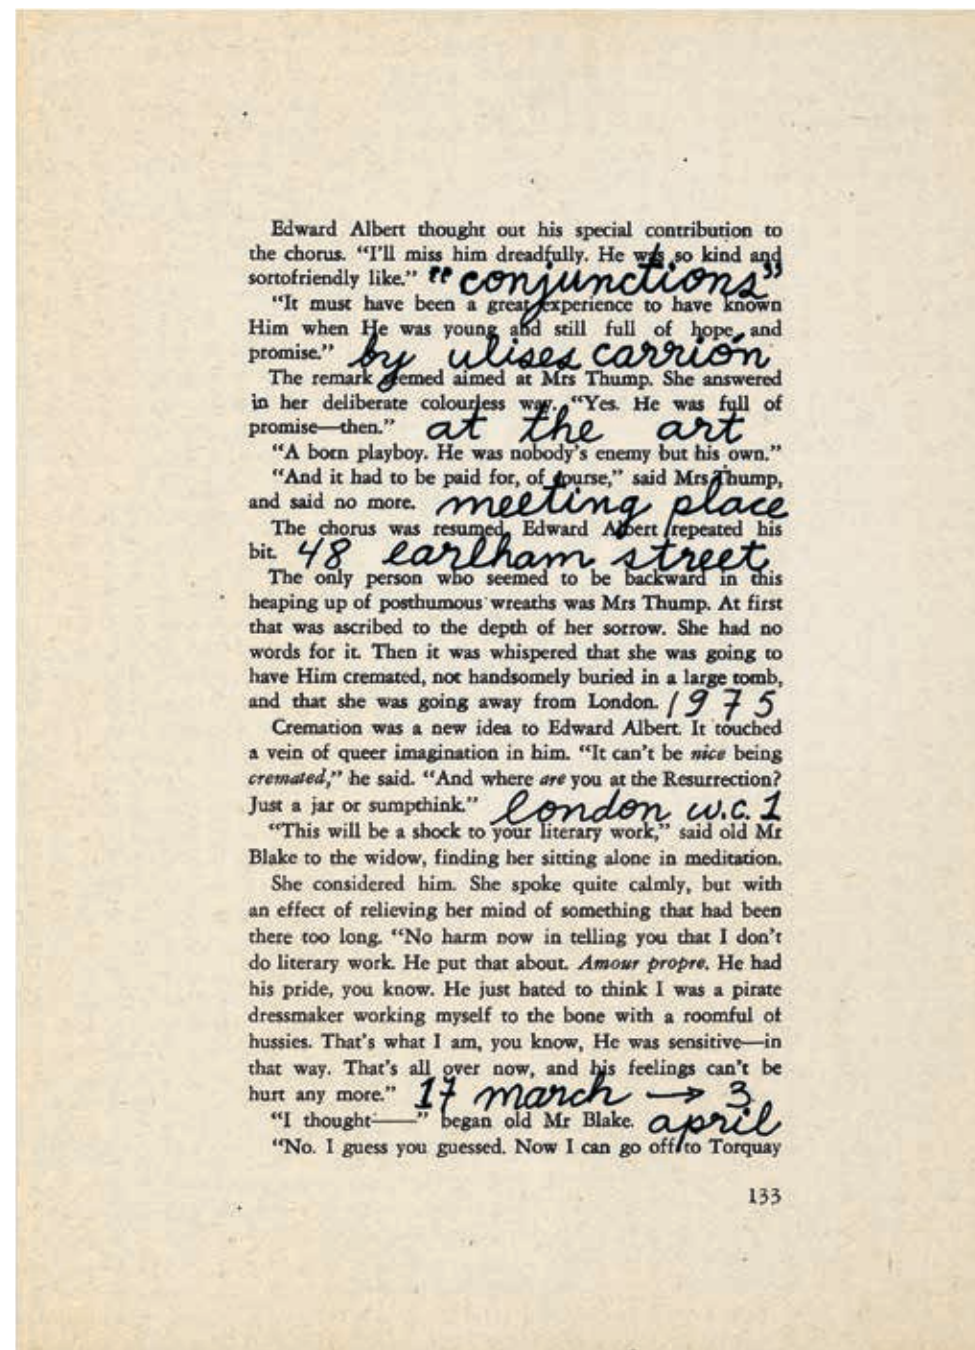 Edward Albert thought out his special contribution to
the chorus. “I’ll miss him dreadfully. He was so kind and
sortofriendly like.” “conjunctions”
“It must have been a great experience to have known
Him when He was young and still full of hope and
promise.” by ulises carrión
The remark seemed aimed at Mrs Thump. She answered
in her deliberate colourless way. “Yes. He was full of
promise—then.” at the art
“A born playboy. He was nobody’s enemy but his own.”
“And it had to be paid for, of course,” said Mrs Thump,
and said no more. meeting place
The chorus was resumed. Edward Albert repeated his
bit. 48 earlham street
The only person who seemed to be backward in this
heaping up of posthumous wreaths was Mrs Thump. At first
that was ascribed to the depth of her sorrow. She had no
words for it. Then it was whispered that she was going to
have Him cremated, not handsomely buried in a large tomb,
and that she was going away from London. 1975
Cremation was a new idea to Edward Albert. It touched
a vein of queer imagination in him. “It can’t be nice being
cremated,” he said. “And where are you at the Resurrection?
Just a jar or sumpthink.” london w.c.1
“This will be a shock to your literary work,” said old Mr
Blake to the widow, finding her sitting alone in meditation.
She considered him. She spoke quite calmly, but with
an effect of relieving her mind of something that had been
there too long. “No harm now in telling you that I don’t
do literary work. He put that about. Amour propre. He had
his pride, you know. He just hated to think I was a pirate
dressmaker working myself to the bone with a roomful of
hussies. That’s what I am, you know, He was sensitive—in
that way. That’s all over now, and his feelings can’t be
hurt any more.” 17 march → 3
“I thought——” began old Mr Blake. april
“No. I guess you guessed. Now I can go off to Torquay
133